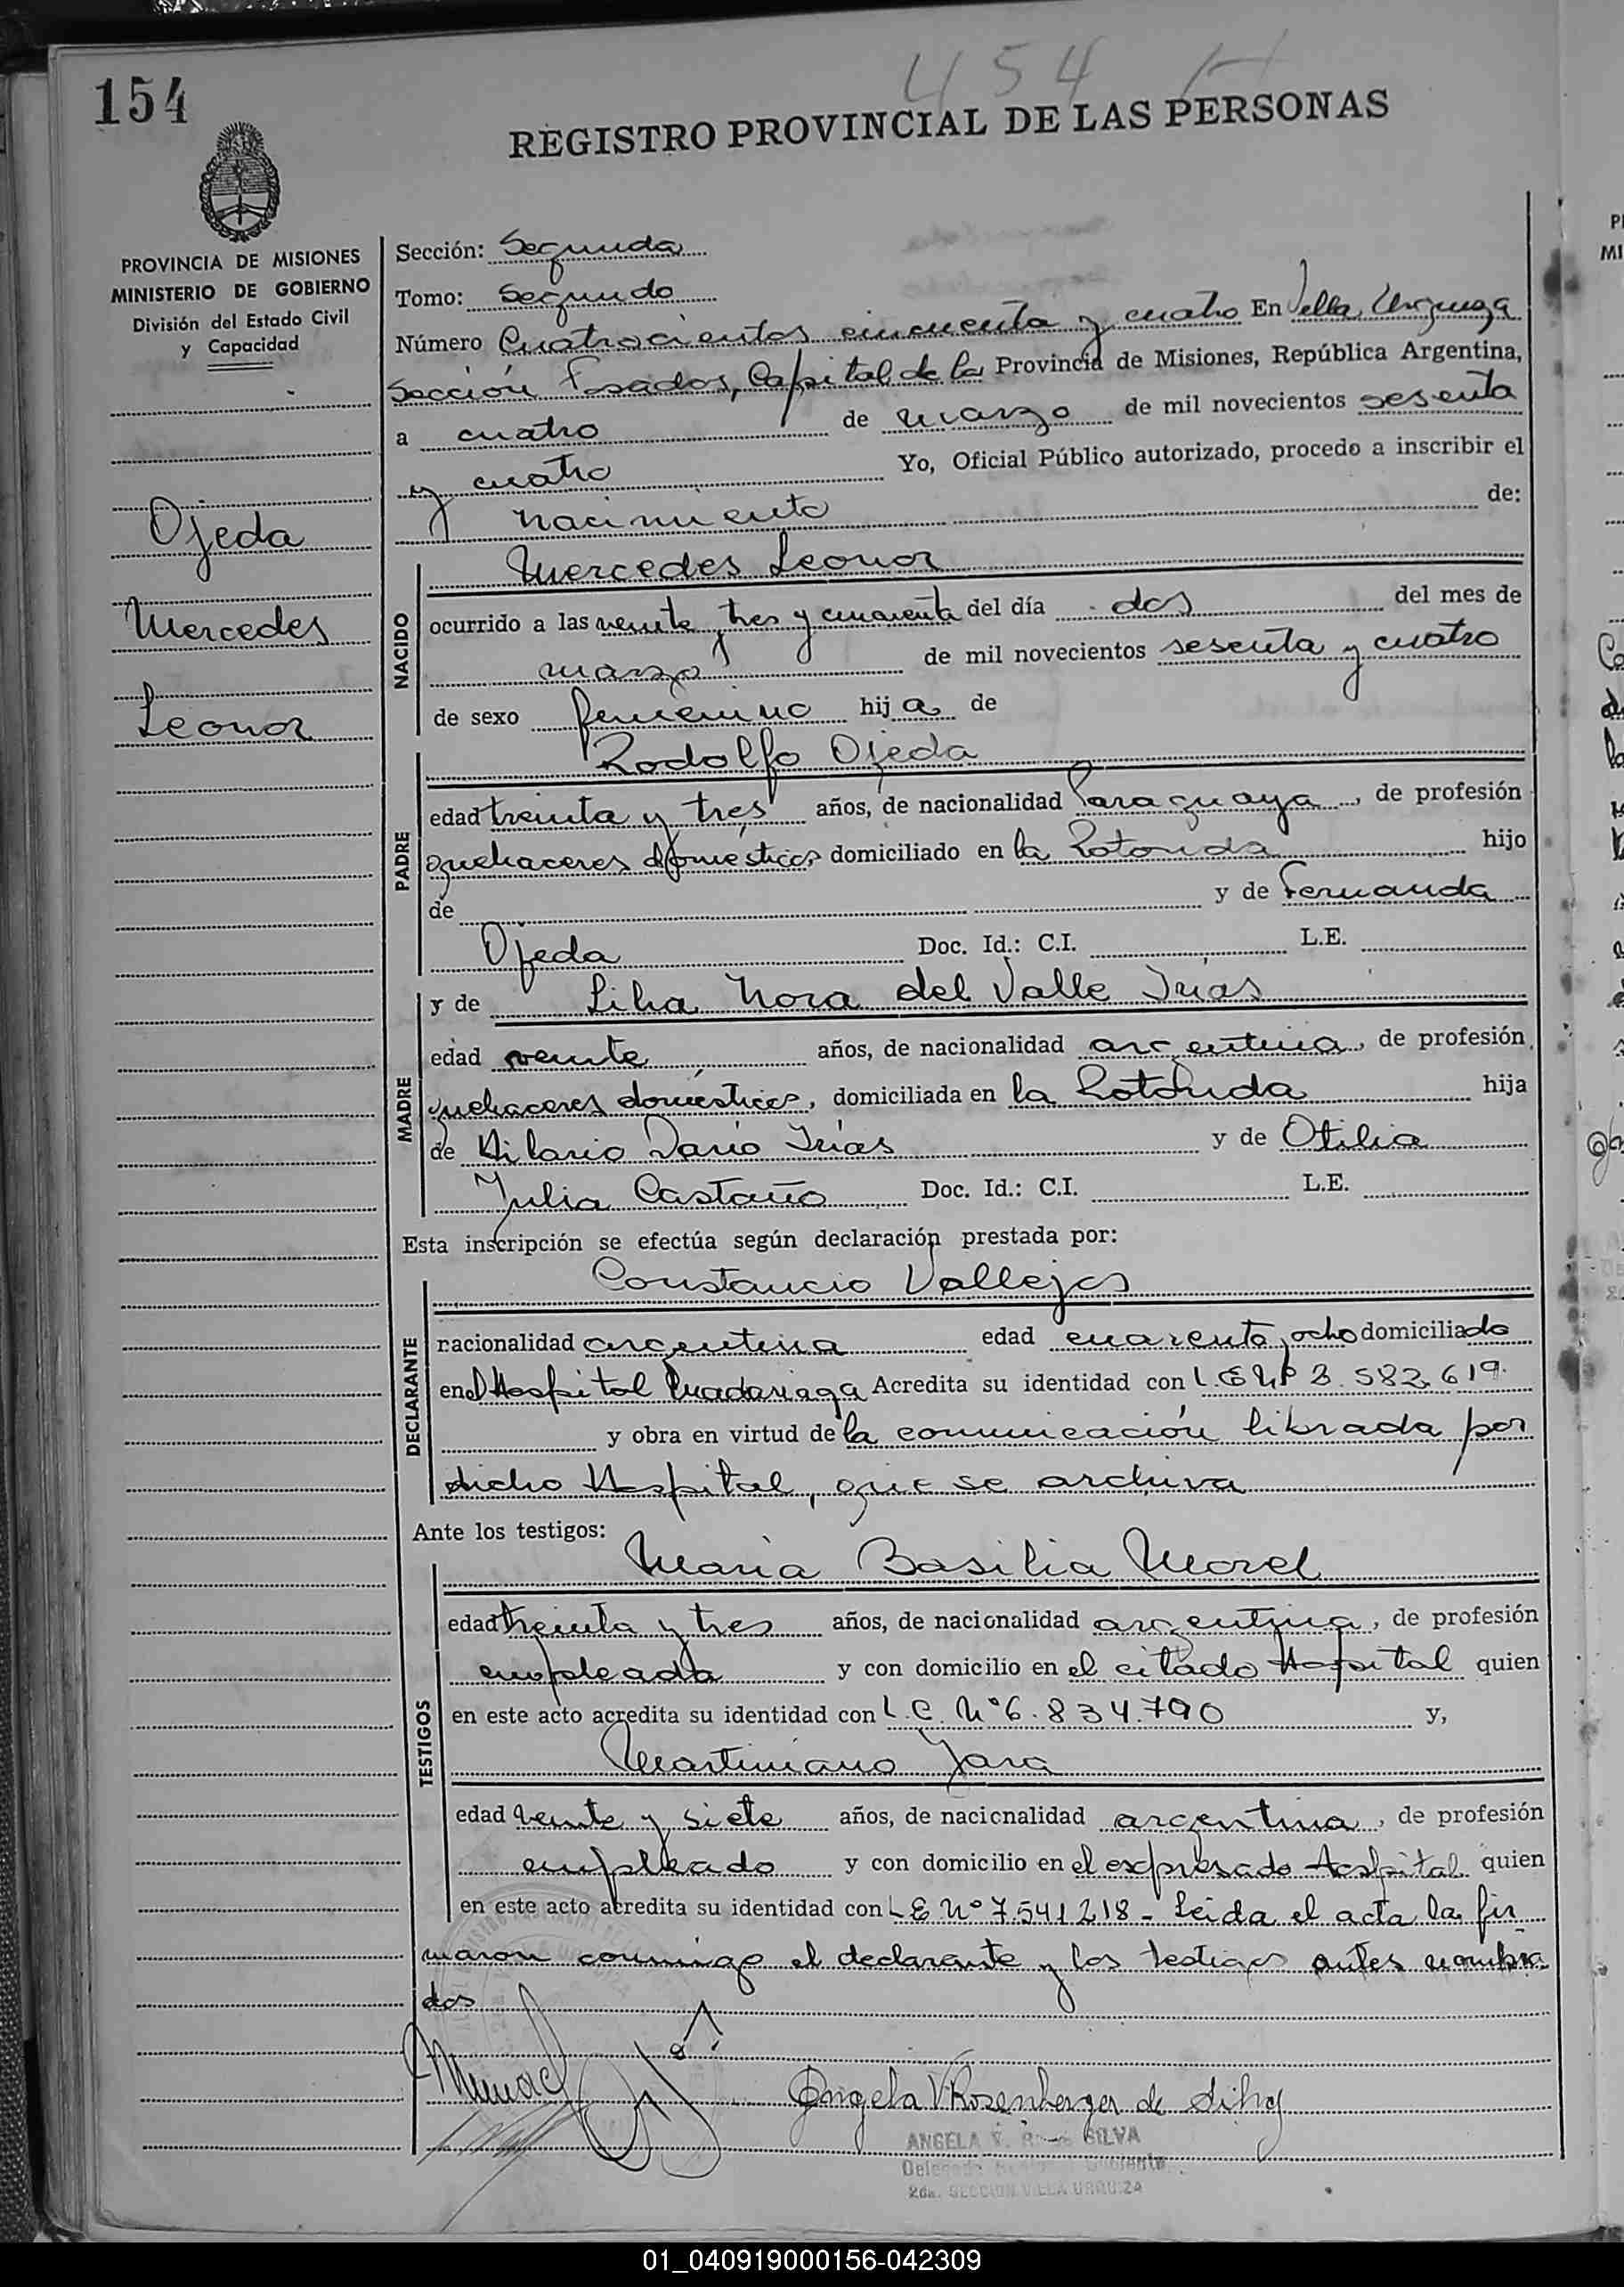 154
454
REGISTRO PROVINCIAL DE LAS PERSONAS
PROVINCIA DE MISIONES
MINISTERIO DE GOBIERNO
División del Estado Civil
y Capacidad
Ojeda
Mercedes
Leonor
Sección: Segunda
Tomo: Segundo
Número Cuatrocientos cincuenta y cuatro En Villa Urquiza
Sección Posadas, Capital de la Provincia de Misiones, República Argentina,
a cuatro de marzo de mil novecientos sesenta
y cuatro Yo, Oficial Público autorizado, procedo a inscribir el
nacimiento de:
NACIDO
Mercedes Leonor
ocurrido a las veinte tres y cuarenta del día dos del mes de
marzo de mil novecientos sesenta y cuatro
de sexo femenino hija de
PADRE
Rodolfo Ojeda
edad treinta y tres años, de nacionalidad Paraguaya, de profesión
quehaceres domésticos domiciliado en la Rotonda hijo
de y de Fernanda
Ojeda Doc. Id.: C.I. L.E.
MADRE
y de Lilia Nora del Valle Irias
edad veinte años, de nacionalidad argentina, de profesión
quehaceres domésticos, domiciliada en la Rotonda hija
de Hilario Dario Irias y de Otilia
Julia Castaño Doc. Id.: C.I. L.E.
Esta inscripción se efectúa según declaración prestada por:
DECLARANTE
Constancio Vallejos
nacionalidad argentina edad cuarenta y ocho domiciliado
en el Hospital Madariaga Acredita su identidad con L.E. Nº 3.582.619.
y obra en virtud de la comunicación librada por
dicho Hospital, que se archiva
Ante los testigos:
TESTIGOS
Maria Basilia Morel
edad treinta y tres años, de nacionalidad argentina, de profesión
empleada y con domicilio en el citado Hospital quien
en este acto acredita su identidad con L.C. Nº 6.834.790 y,
Martiniano Jara
edad veinte y siete años, de nacionalidad argentina, de profesión
empleado y con domicilio en el expresado Hospital quien
en este acto acredita su identidad con L E Nº 7.541.218 - Leida el acta la fir
maron conmigo el declarante y los testigos antes nombra
dos
Angela V Rosenberger de Silva
ANGELA V. SILVA
2da. SECCION VILLA URQUIZA
01_040919000156-042309